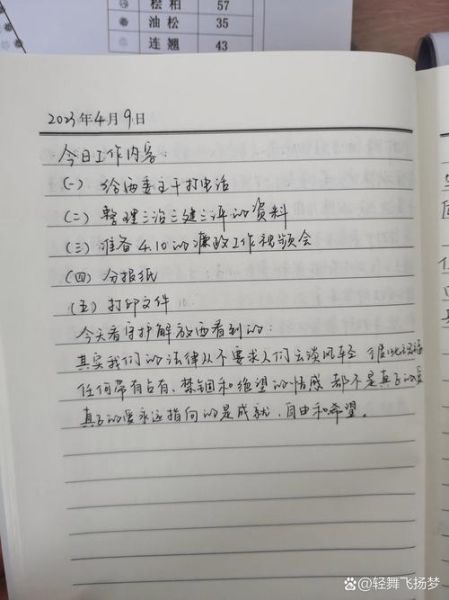 桧柏 57
油松 35
连翘 43
2023年4月9日
今日工作内容:
(一) 给两委主干打电话
(二) 整理三治三建三评的资料
(三) 准备4.10的廉政工作视频会
(四) 分报纸
(五) 打印文件
今天看守护解放西看到的:
其实我们的法律从不要求人们云淡风轻
任何带有占有、禁锢和绝望的情感 都不是真正的爱
真正的爱永远指向的是成就、自由和希望。
@轻舞飞扬梦